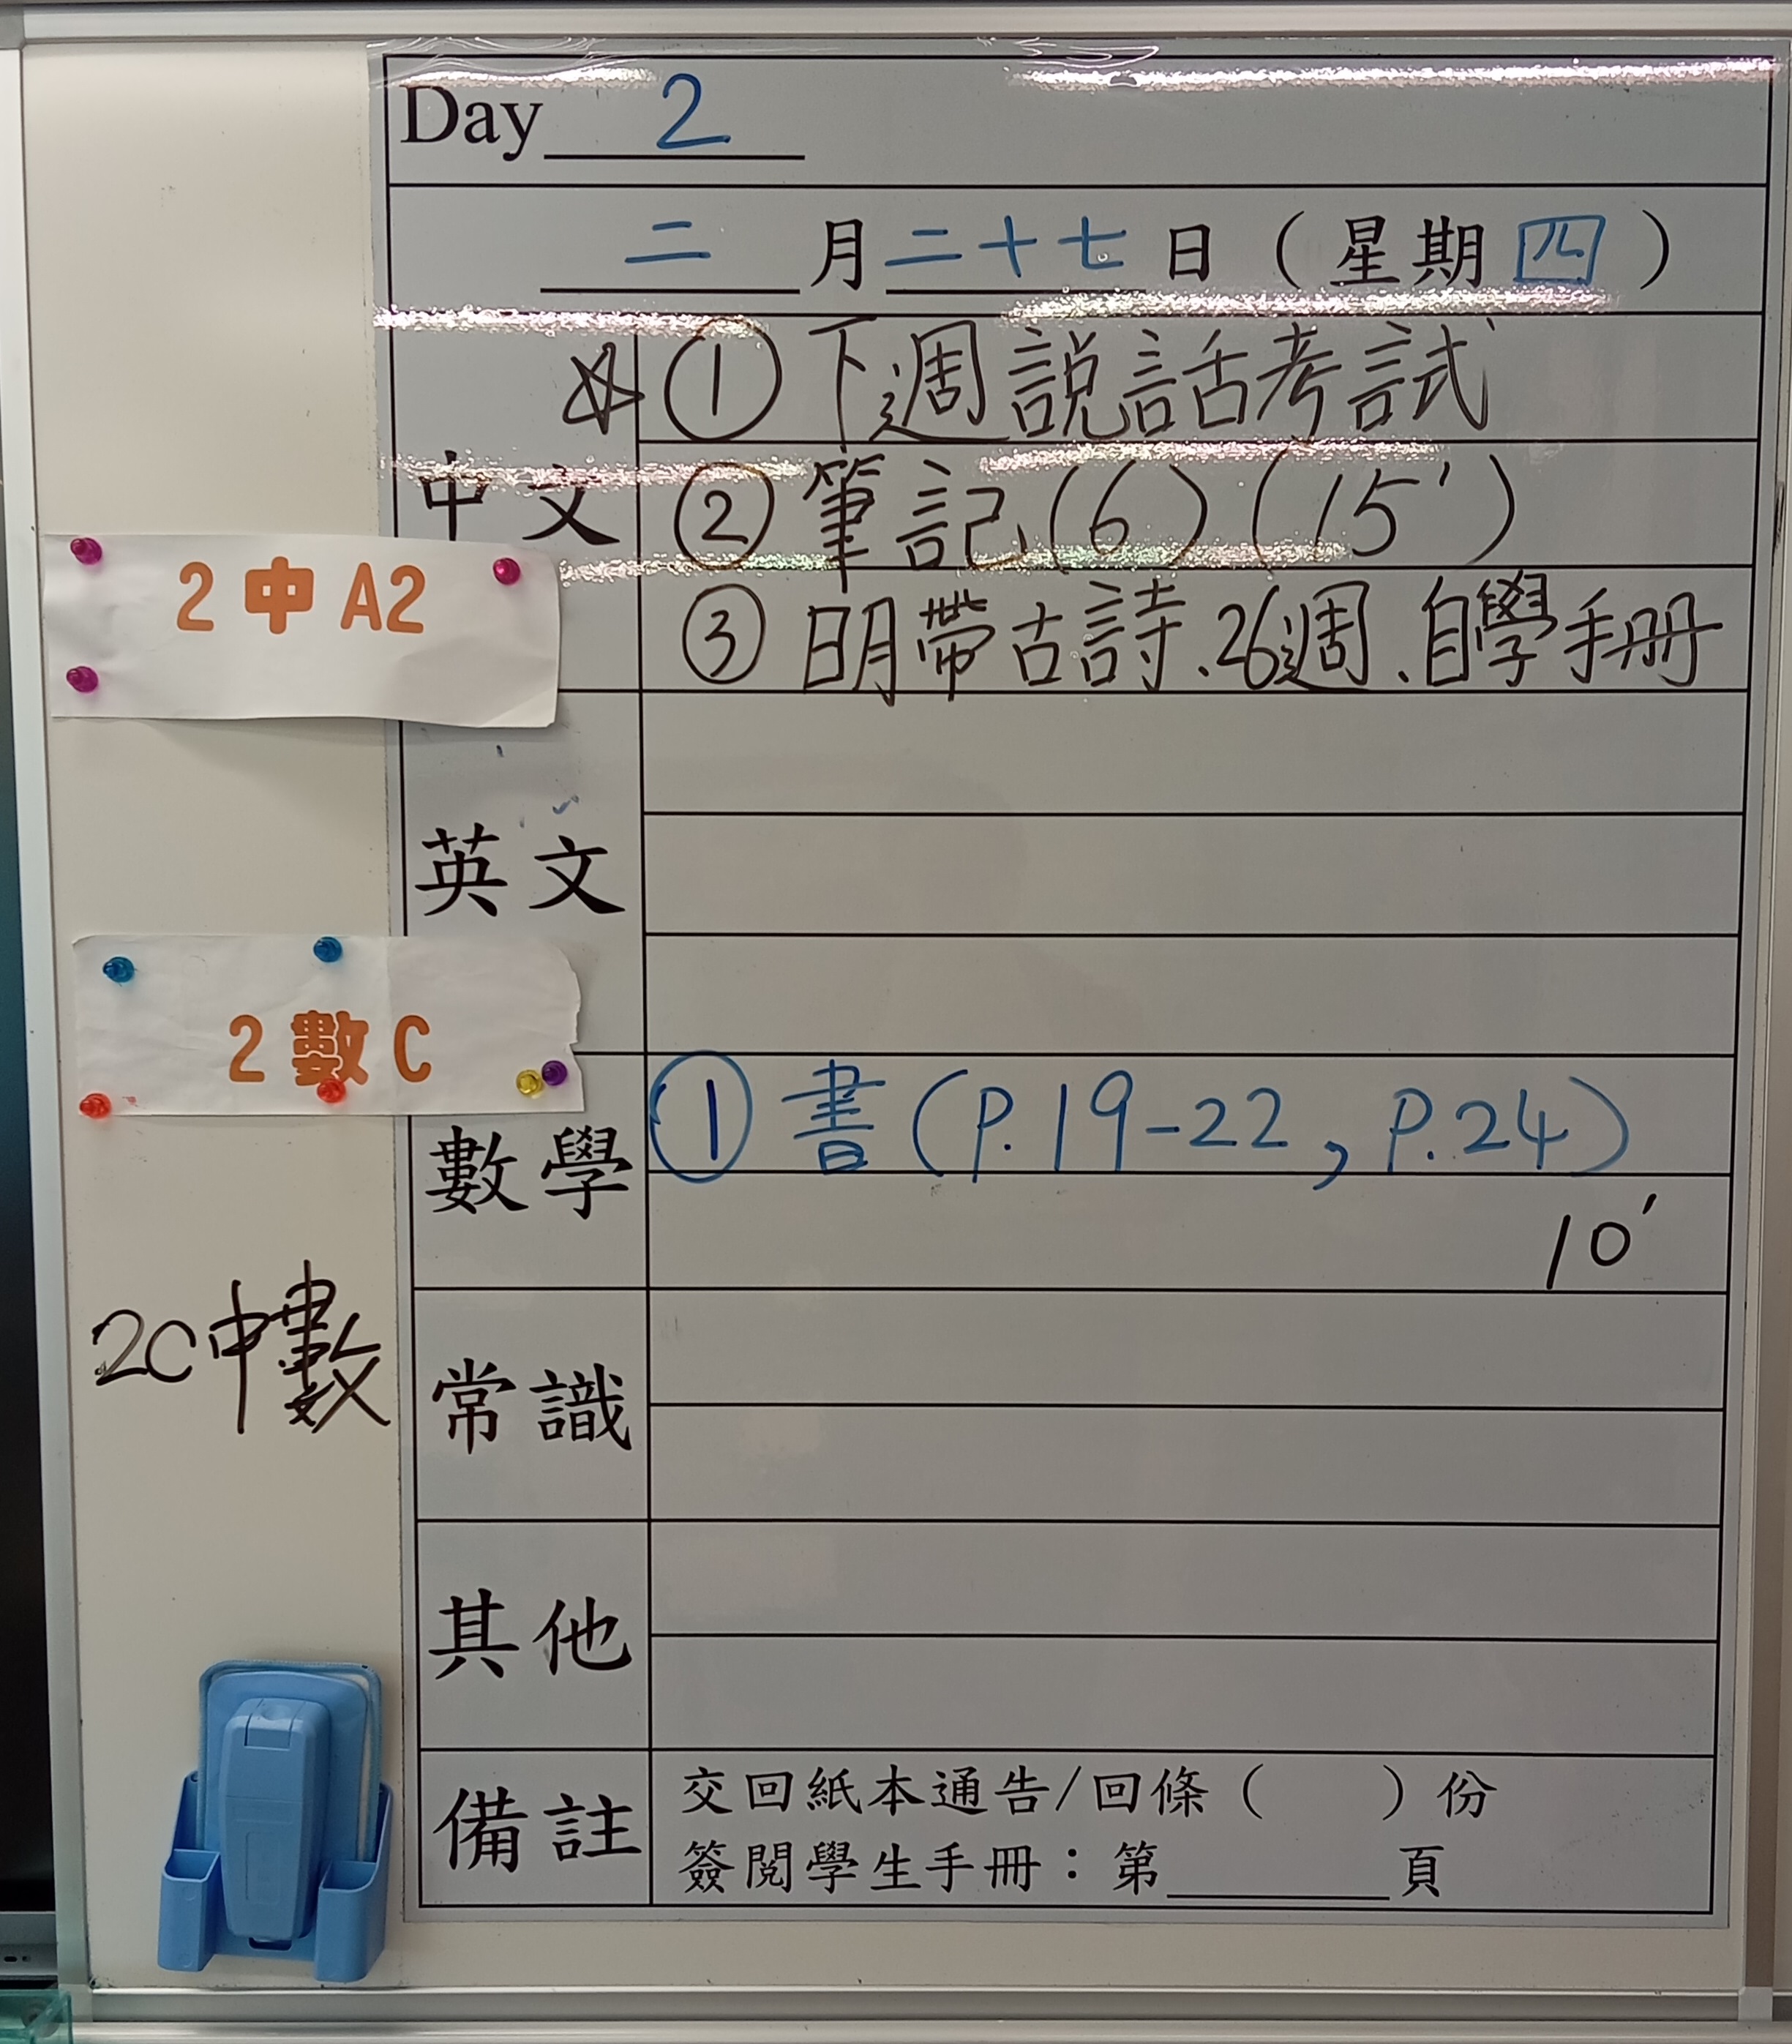 Day 2
二月二十七日（星期四）
中文
☆①下週說話考試
②筆記(6)(15')
③明帶古詩、26週、自學手冊
2中A2
英文
2數C
數學
①書(P.19-22, P.24)
10'
2C中數
常識
其他
備註
交回紙本通告/回條（ ）份
簽閱學生手冊：第____頁